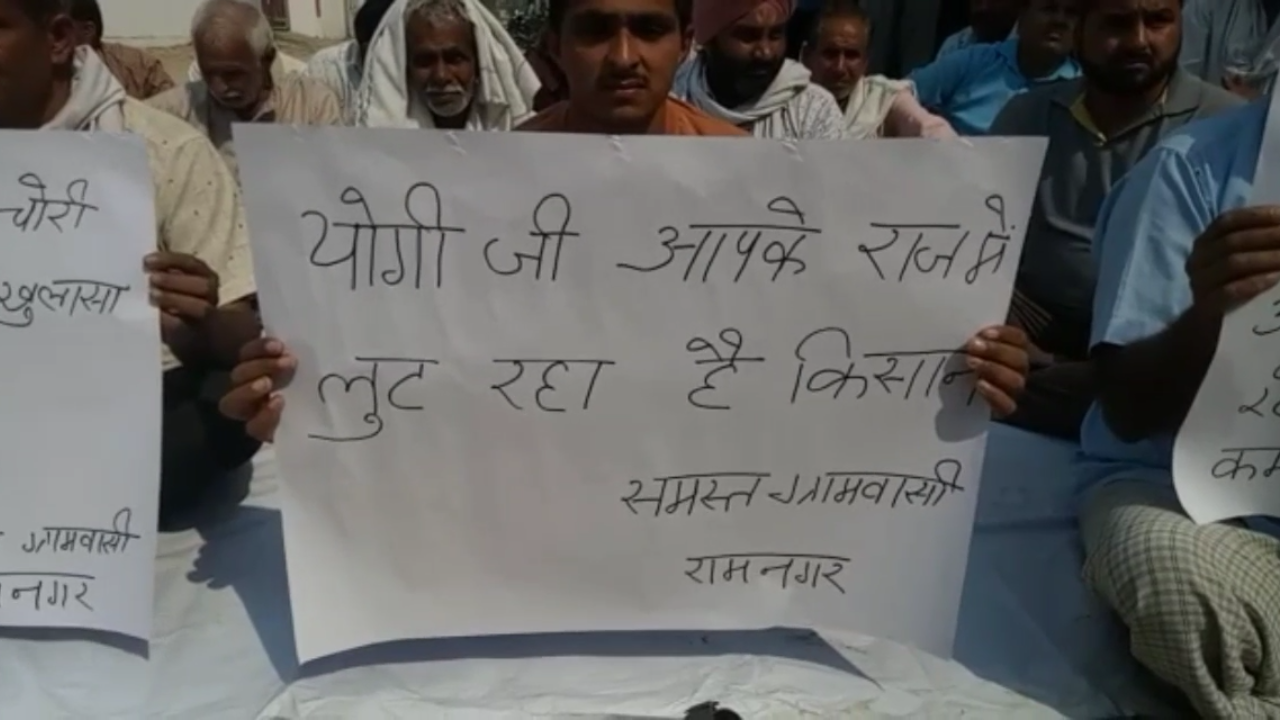 चोरी
खुलासा
ग्रामवासी
नगर
योगी जी आपके राज में
लुट रहा है किसान
समस्त ग्रामवासी
रामनगर